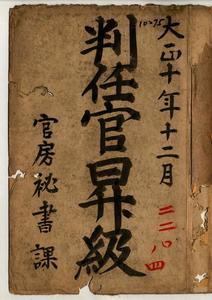 大正十年十二月
10-75
判任官昇級
官房祕書課
二二八四